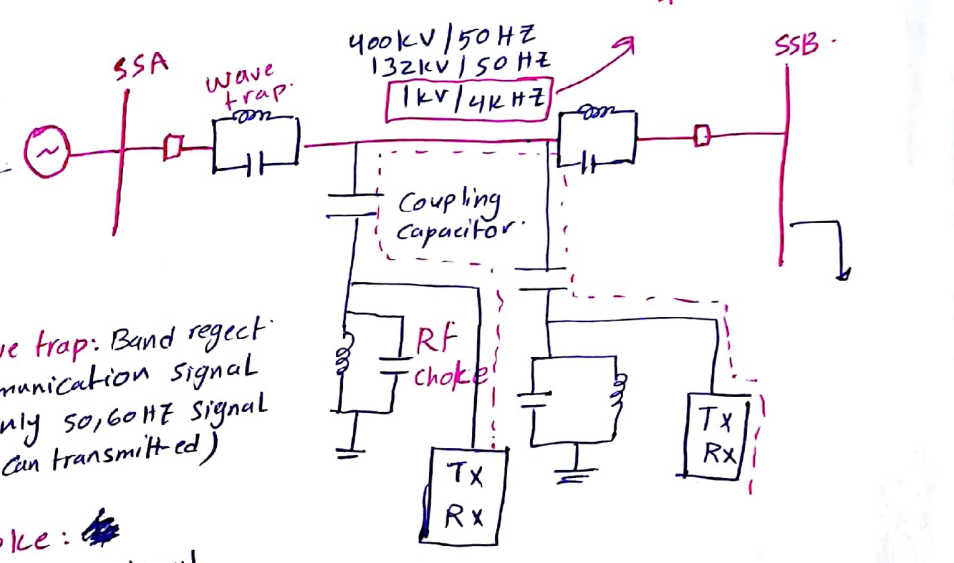 SSA
wave
trap.
400kV/50HZ
132kV/50HZ
1kV/4KHZ
SSB.
~
Coupling
Capacitor.
RF
choke
Tx
Rx
Tx
Rx
ve trap: Band regect
munication signal
nly 50,60HZ signal
Can transmitted)
oke: